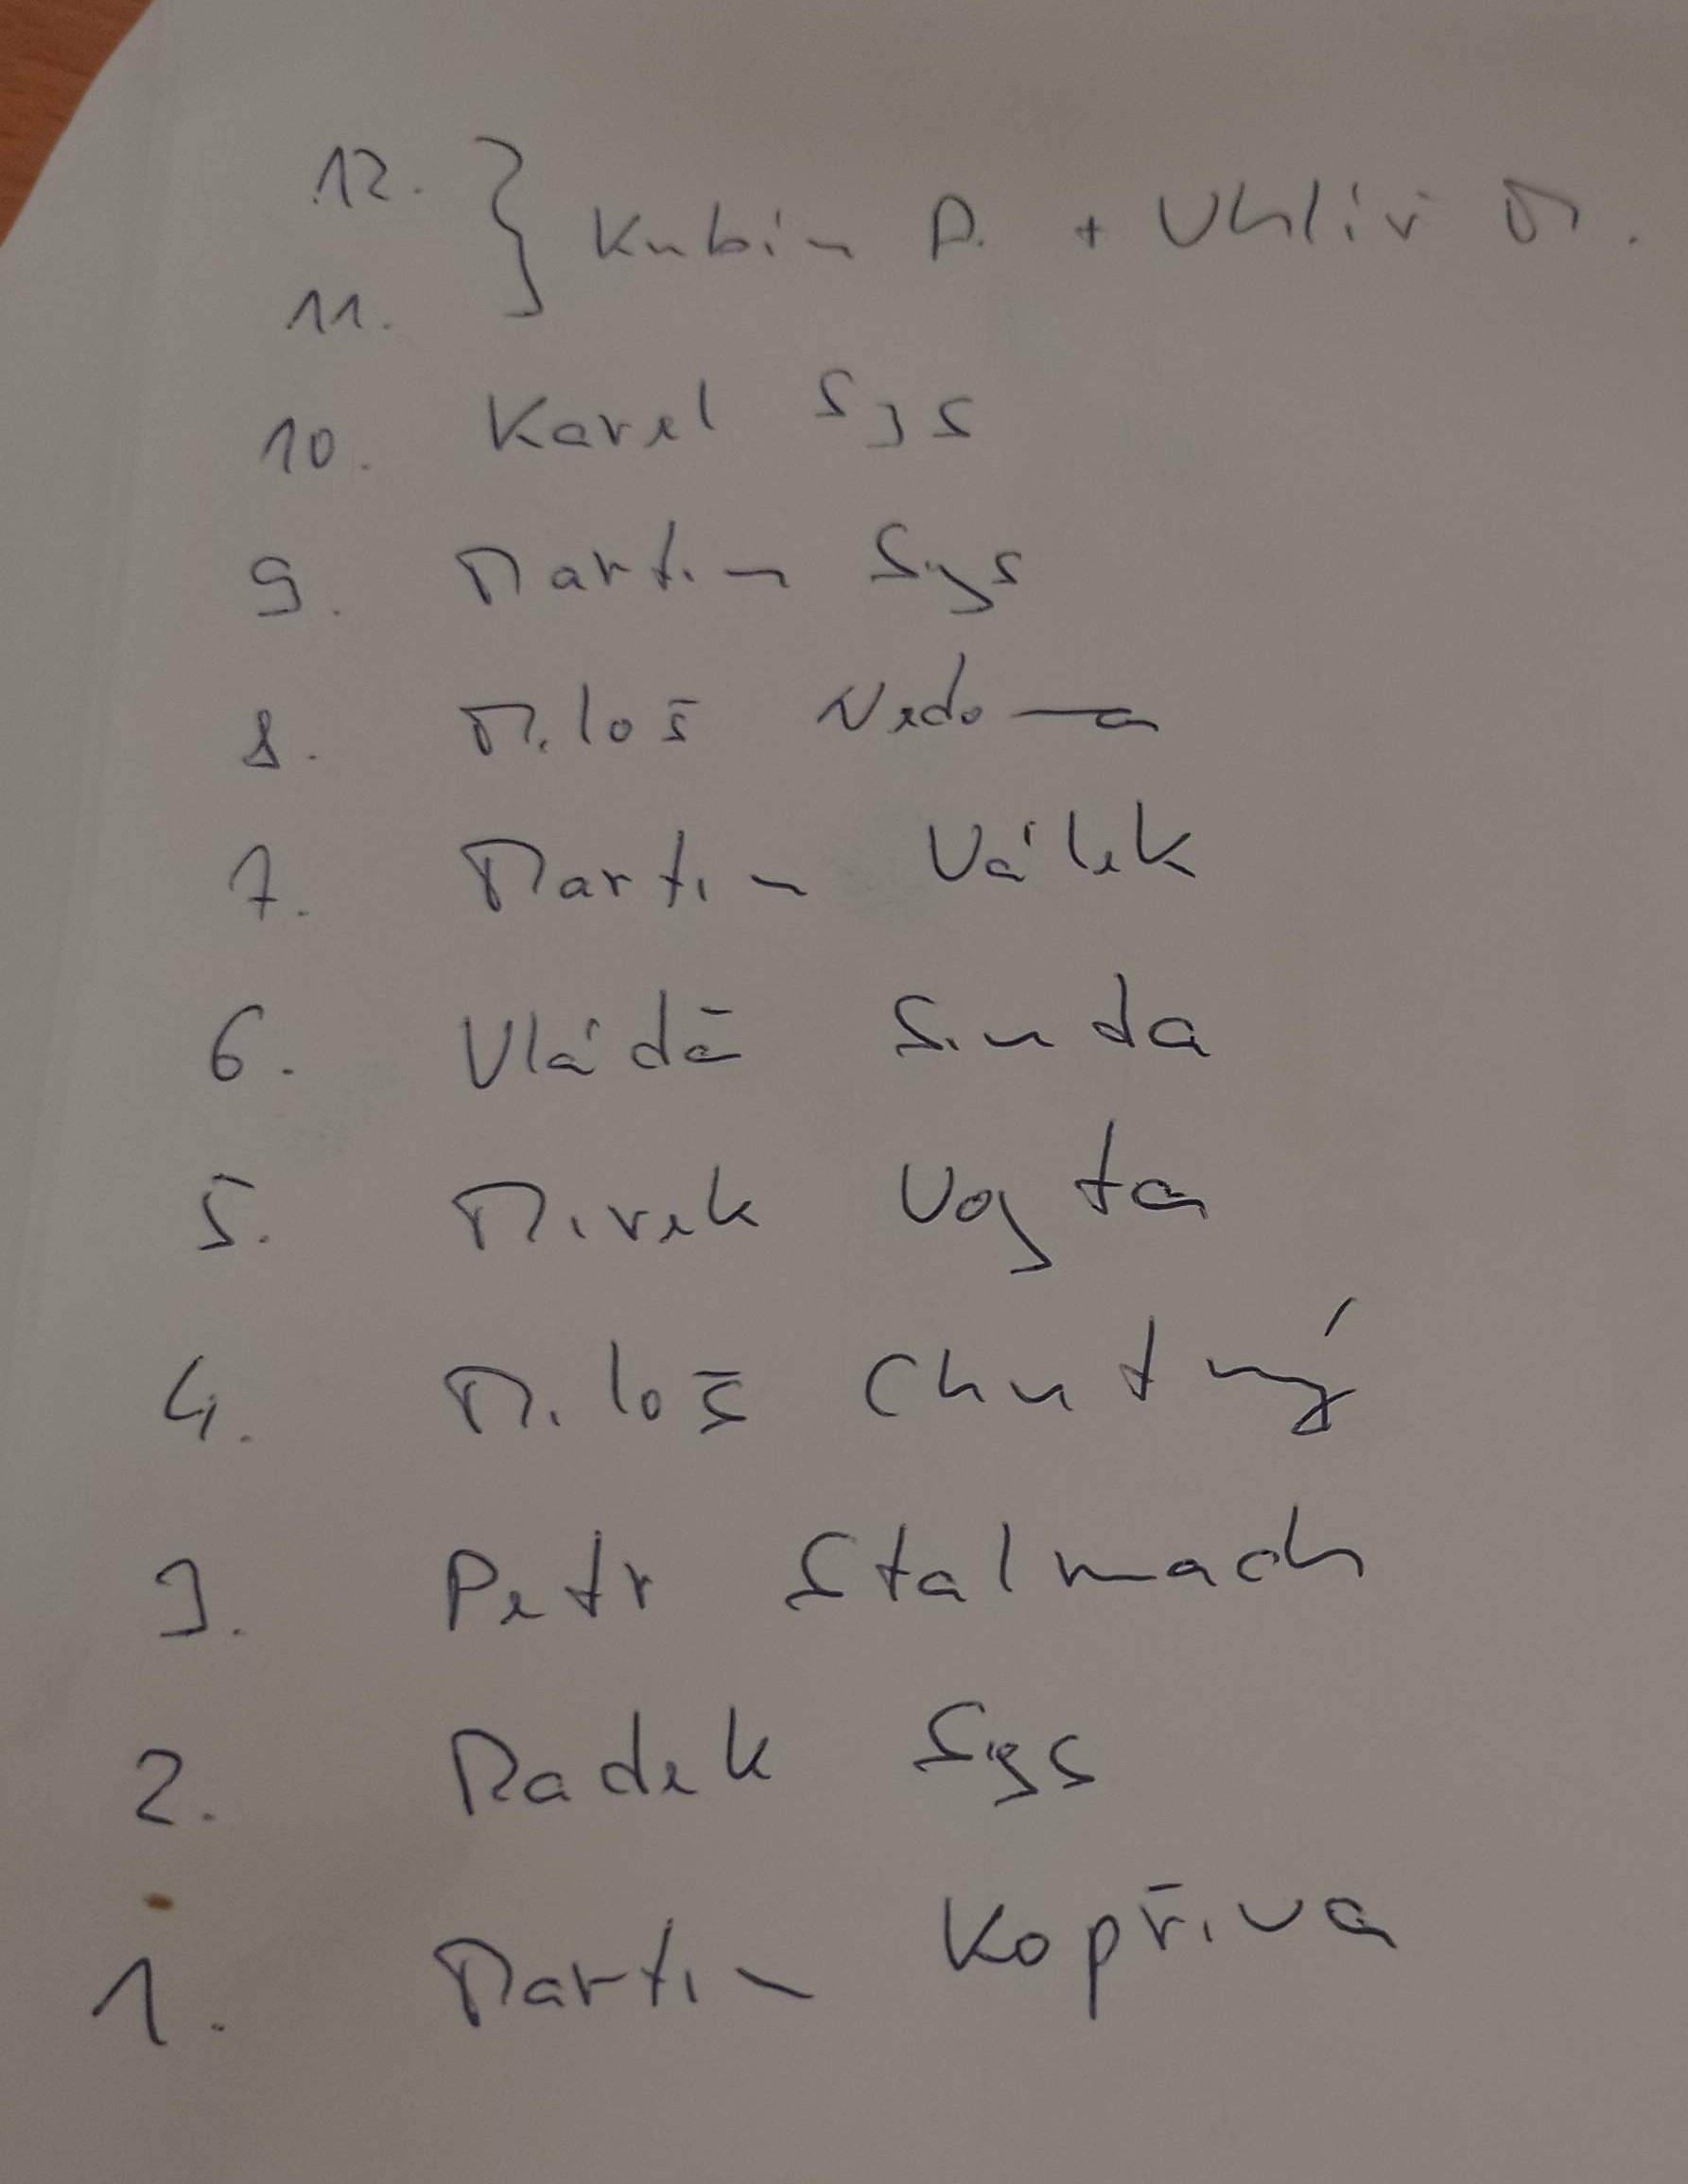 12. } Kubín P. + Uhlíř M.
11.
10. Karel Sys
9. Martin Sys
8. Miloš Nedoma
7. Martin Válek
6. Vláďa Šinda
5. Mirek Vojta
4. Miloš Chutný
3. Petr Stalmach
2. Radek Sys
1. Martin Kopřiva